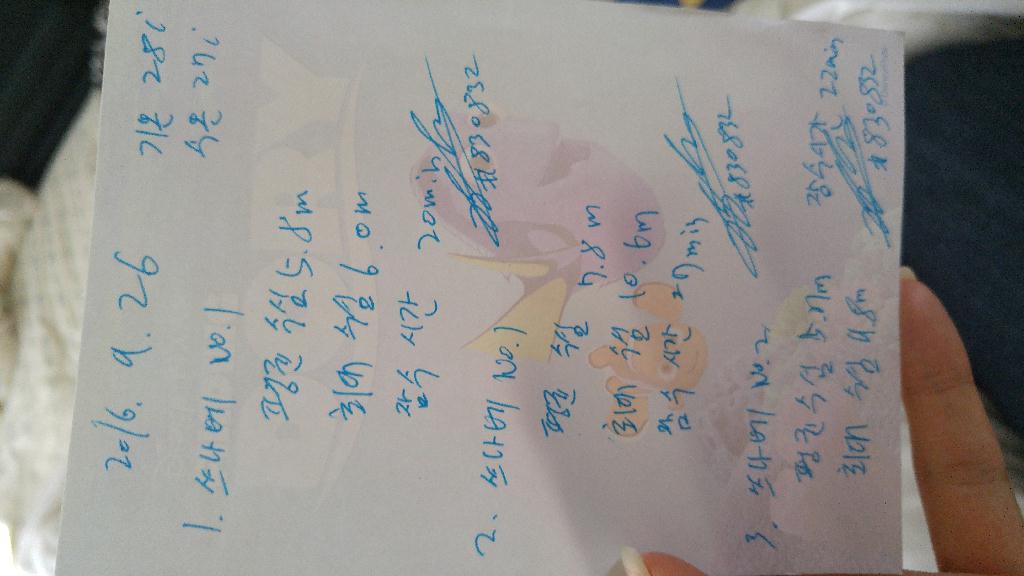 2016. 9. 26
기온 28i
수온 27i
1. 쏘나베 No.1
평균 수심 5.8m
최대 수심 6.0m
잠수 시간 20min
#830832
2. 쏘나베 No.1
평균 수심 7.8m
최대 수심 10.6m
잠수 시간
#830832
3. 쏘나베 No.2
평균 수심
최대 수심 9.8m
잠수시간 22min
#830832